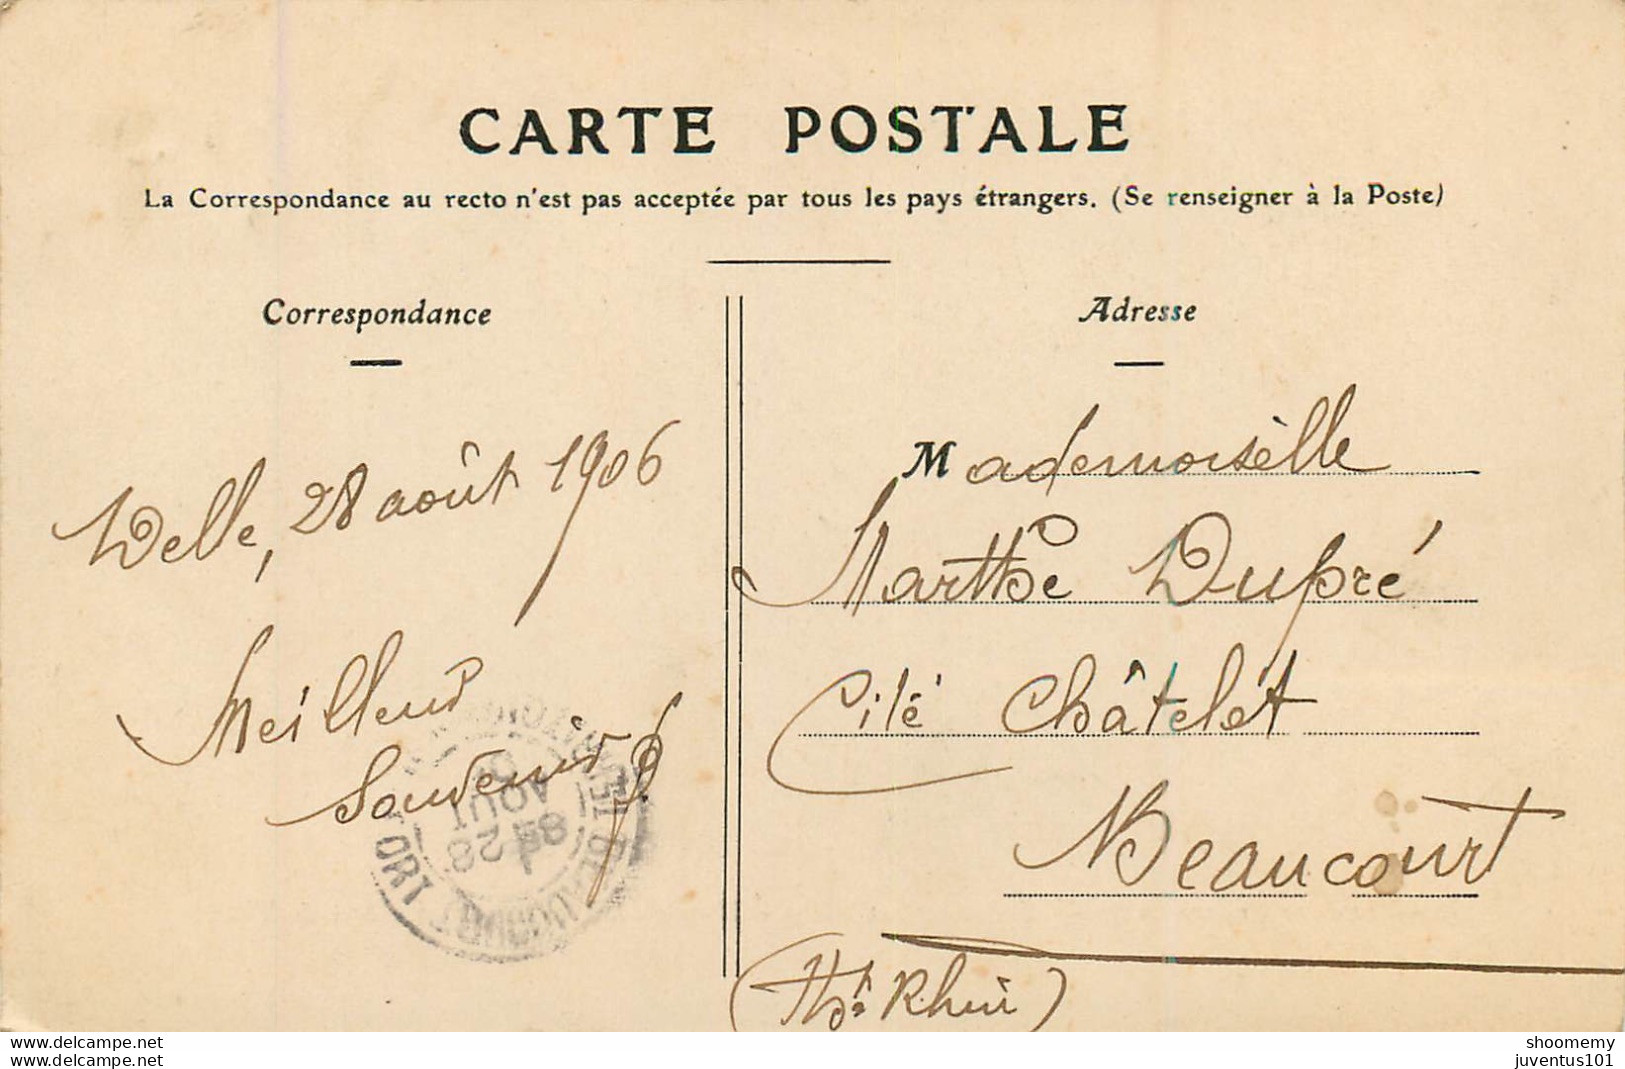 CARTE POSTALE
La Correspondance au recto n'est pas acceptée par tous les pays étrangers. (Se renseigner à la Poste)
Correspondance
Delle, 28 août 1906
Meilleurs
Souvenirs
28
AOUT
BEAUCOURT
Adresse
Mademoiselle
Marthe Dupré
Cité Châtelet
Beaucourt
(Ht Rhin)
www.delcampe.net
recto on line
shoomemy
juventus101